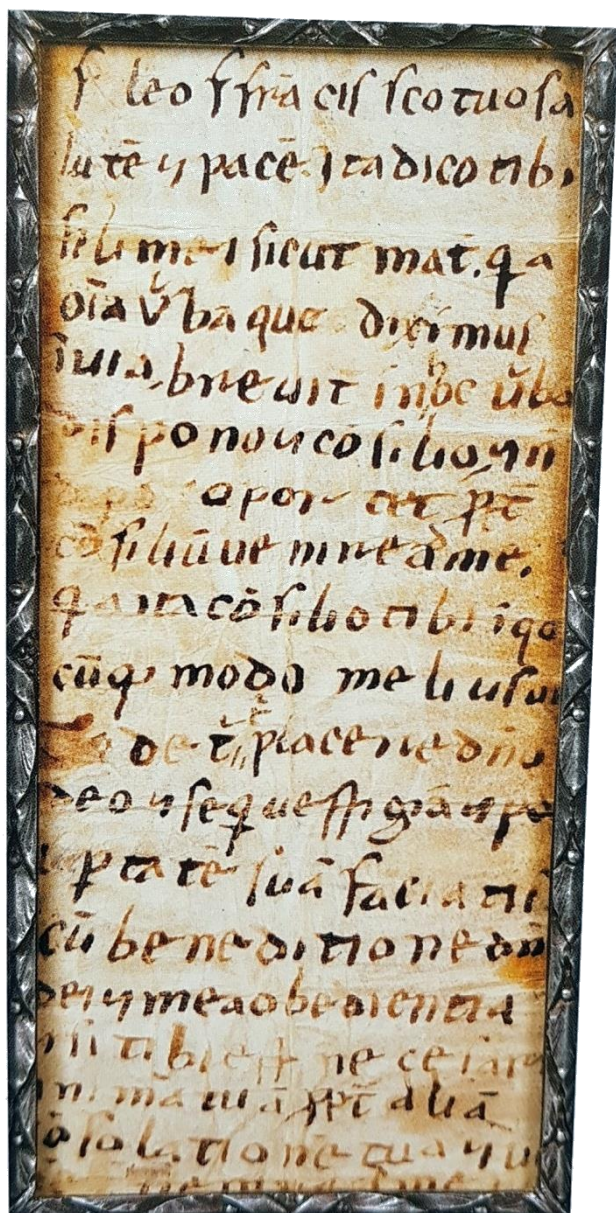 f leo f frācissco tuo sa
lutē ⁊ pacē. Ita dico tibi
fili mei sicut mat̄. qa
oīa v̄ba que diximus
ī uia, breuit̄ in hoc v̄ba
dispono ⁊ cōsilio, ⁊ n
opor tet ꝓpt̄
cōsiliū uenire ad me.
qa ita cōsilio tibi ī qo
cūq; modo melius ui
de t̄ placere dn̄o
deo ⁊ seq uestigiā ⁊ pa
up ta tē suā faciatis
cū beneditione dn̄i
dei ⁊ mea obedientia
si tibi est necesariū
animā tuā ꝓpt̄ aliā
cōsolationē tuā ⁊ ui